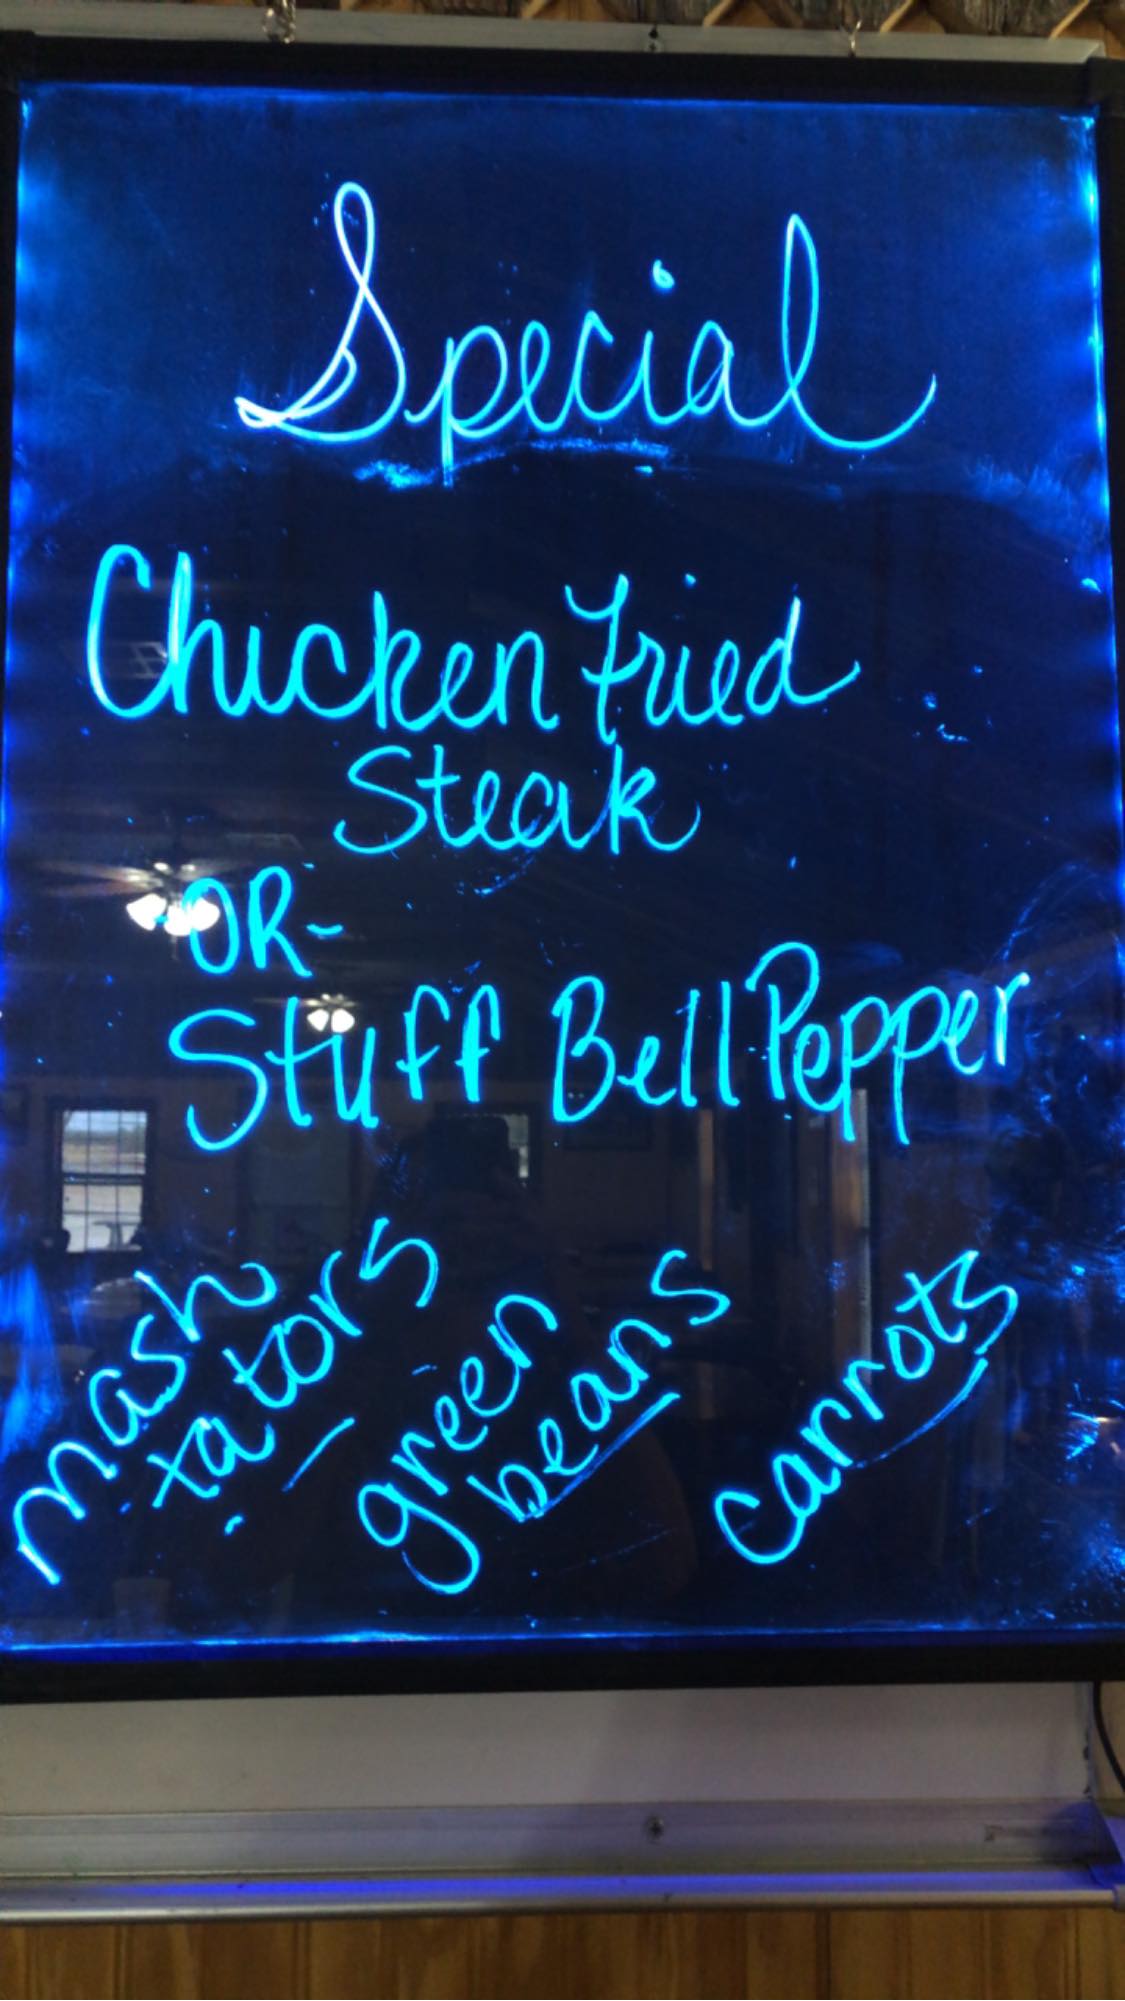 Special
Chicken Fried
Steak
OR-
Stuff Bell Pepper
mash
tators
green
beans
carrots